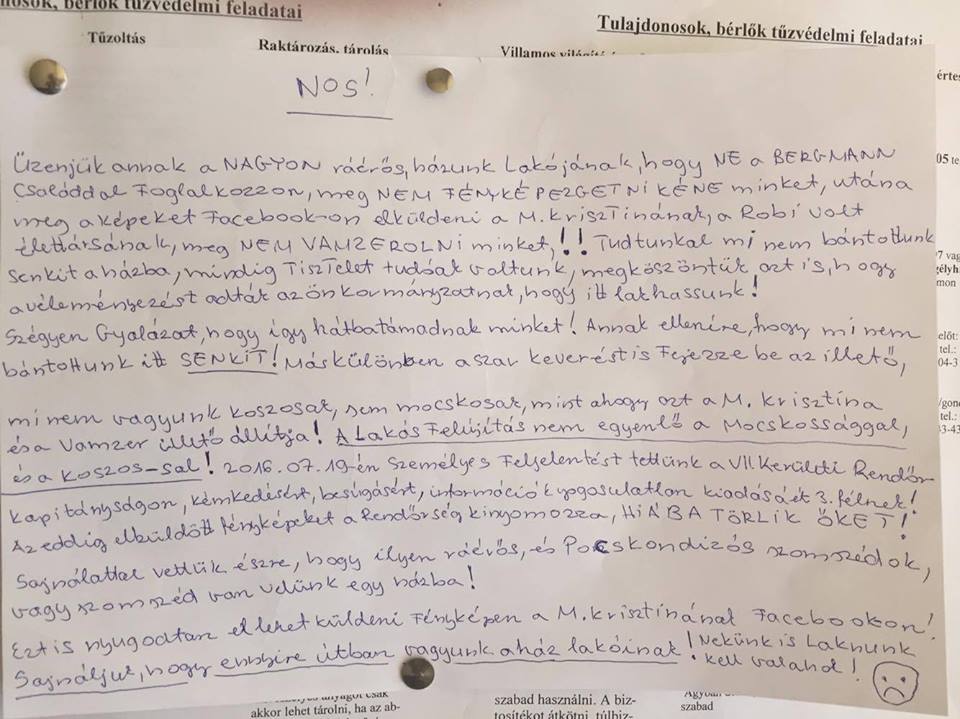 nosok, bérlők tűzvédelmi feladatai
Tulajdonosok, bérlők tűzvédelmi feladatai
Tűzoltás
Raktározás, tárolás
Villamos
NOS!
Üzenjük annak a NAGYON ráérős, házunk Lakójának, hogy NE a BERGMANN
Családdal foglalkozzon, meg NEM FÉNYKÉPEZGETNI KÉNE minket, utána
meg a képeket Facebook-on elküldeni a M. Krisztinának, a Robi volt
élettársának, meg NEM VAMZEROLNI minket, !! Tudtunkal mi nem bántottunk
senkit a házba, mindig TiszTelet tudóak voltunk, megköszöntük azt is, hogy
a véleményezést adták az önkormányzatnak, hogy itt lakhassunk!
Szégyen Gyalázat, hogy így hátbatámadnak minket! Annak ellenére, hogy mi nem
bántottunk itt SENKIT! Máskülönben a szar keverést is Fejezze be az illető,
mi nem vagyunk koszosak, sem mocskosak, mint ahogy azt a M. Krisztina
és a Vamzer illető állítja! A Lakás Felújítás nem egyenlő a Mocskossággal,
és a Koszos-sal! 2016.07.19-én Személyes Feljelentést tettünk a VII. Kerületi Rendőr
Kapitányságon, kémkedésért, besúgásért, információk jogosulatlan kiadásáét 3. félnek!
Az eddig elküldött fényképeket a Rendőrség kinyomozza, HIÁBA TÖRLIK ŐKET!
Sajnálattal vettük észre, hogy ilyen ráérős, és Pocskondizós szomszédok,
vagy szomszéd van velünk egy házba!
Ezt is nyugodtan el lehet küldeni Fényképen a M. Krisztinának Facebookon!
Sajnáljuk, hogy ennyire útban vagyunk a ház lakóinak! Nekünk is Laknunk
kell valahol!
akkor lehet tárolni, ha az ab-
szabad használni. A biz-
tosítékot átkötni, túlbiz-
szabad